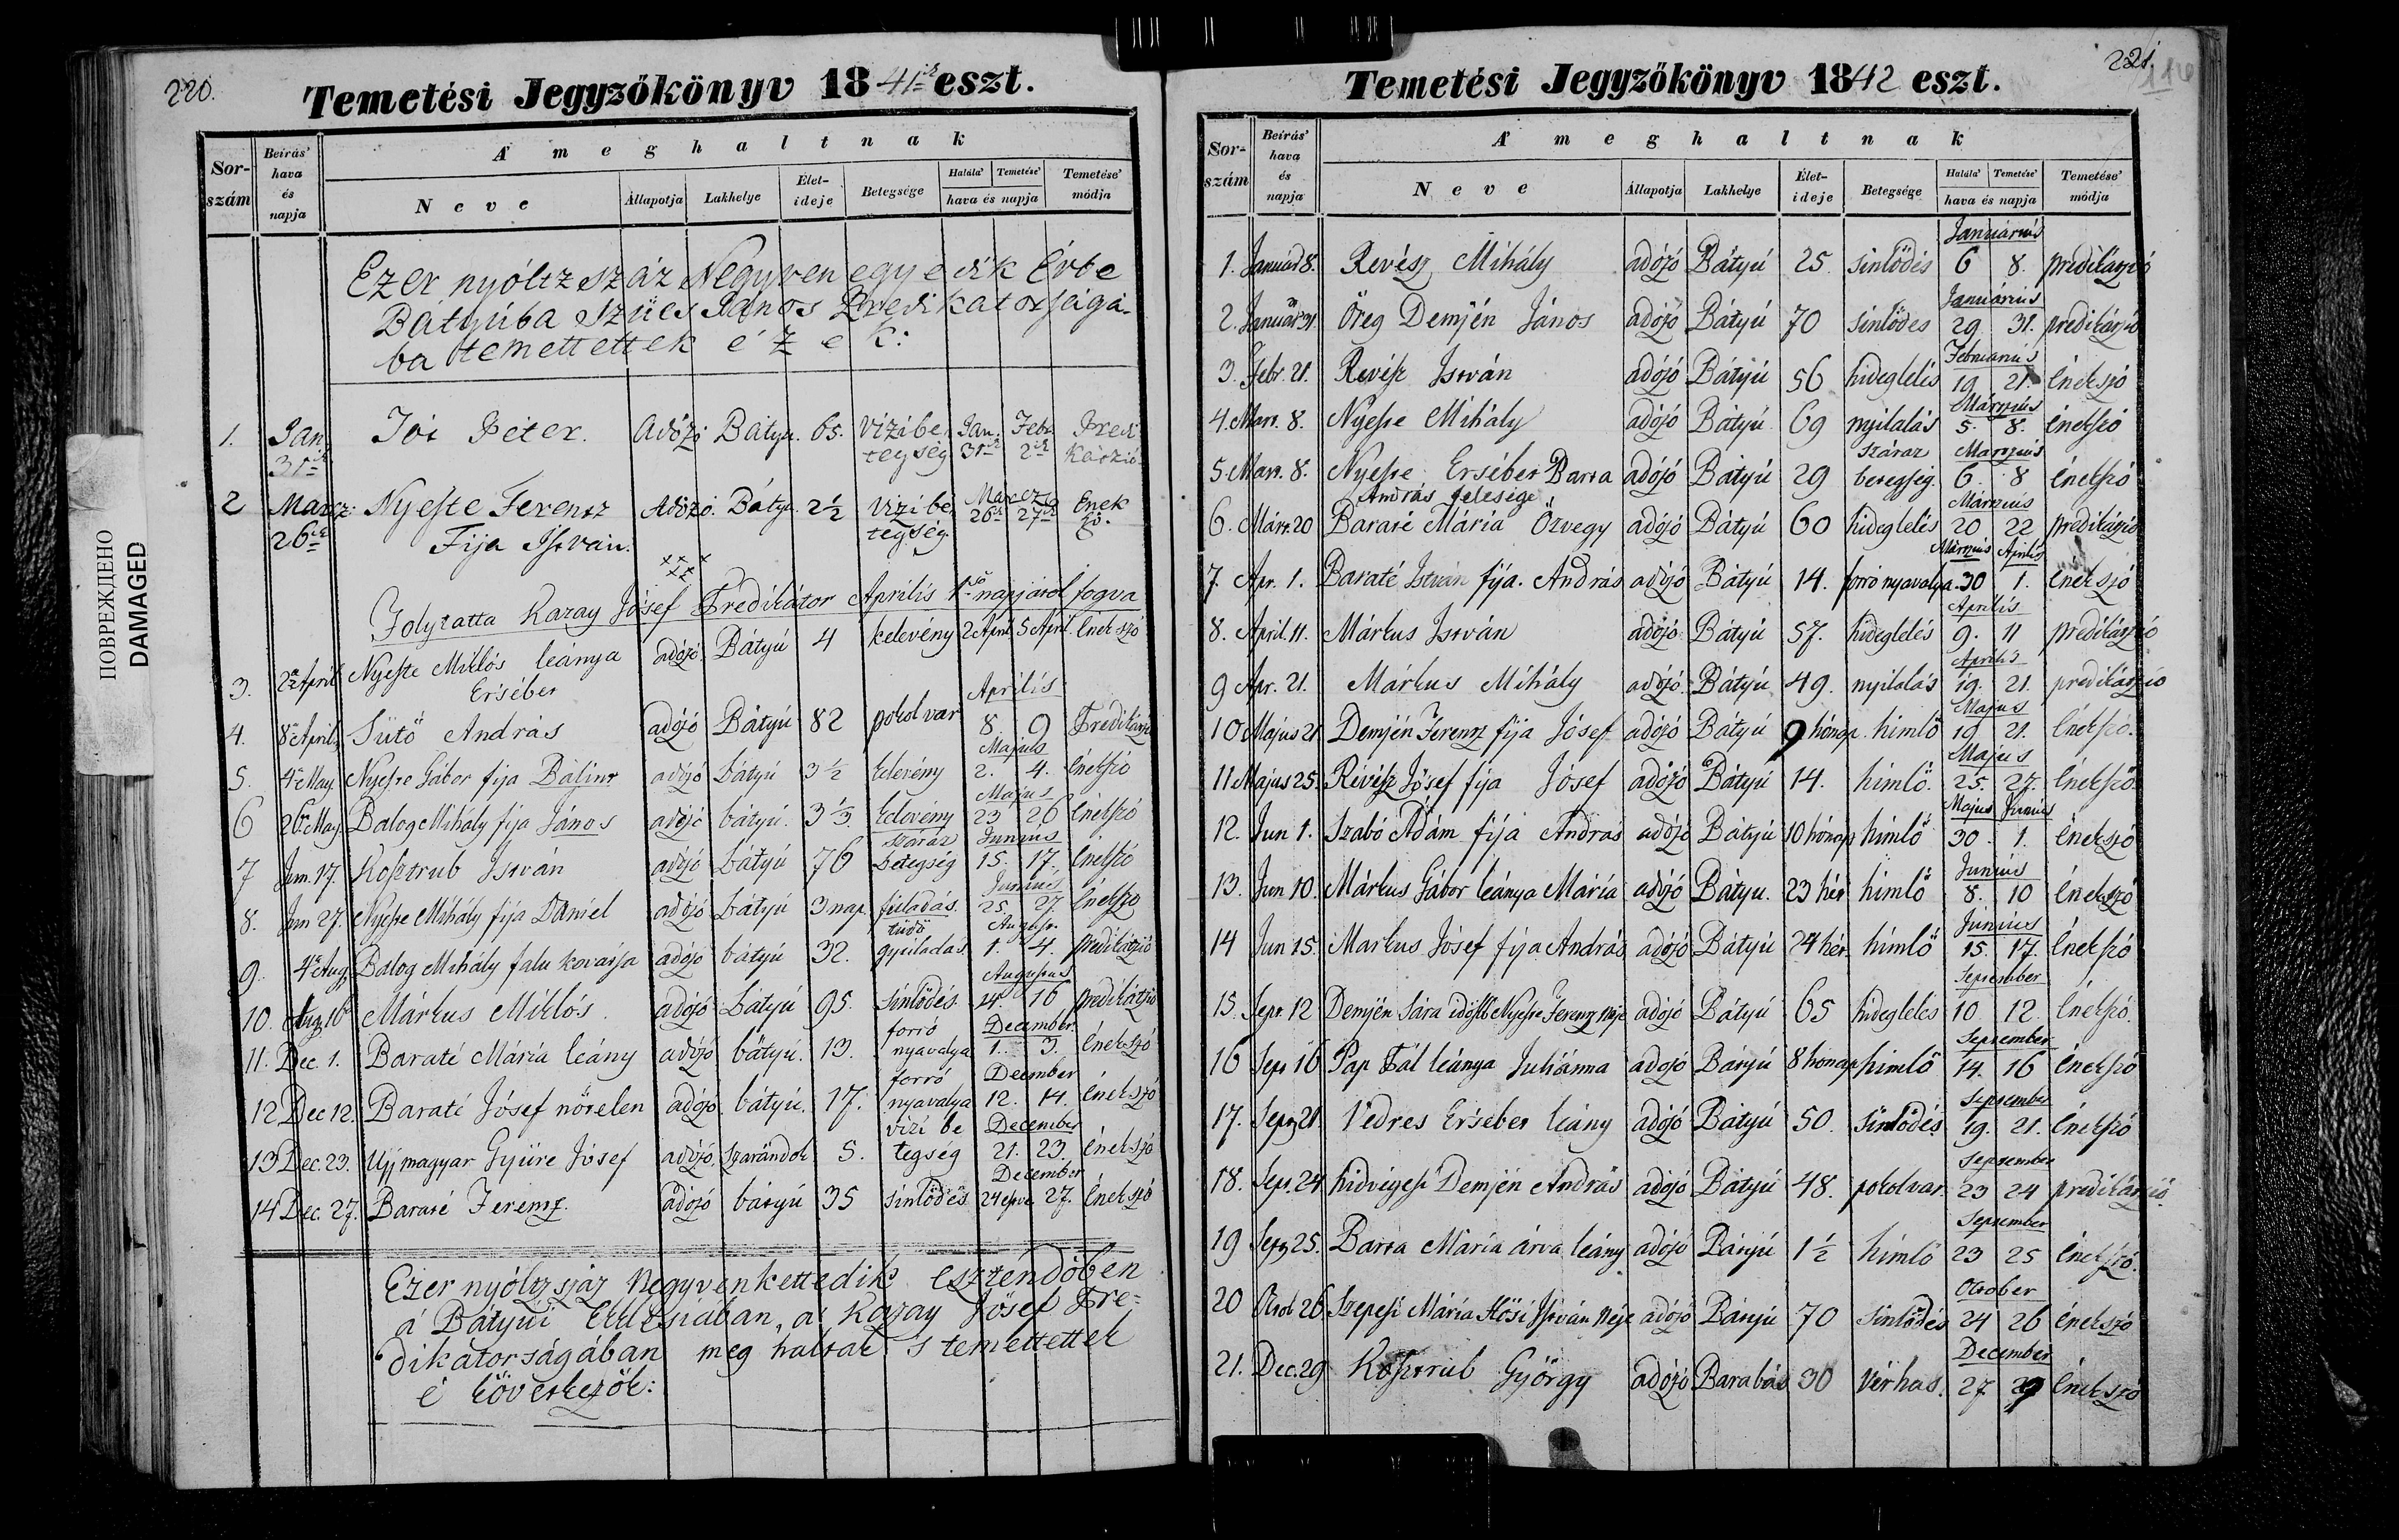 220.
Temetési Jegyzőkönyv 1841ik eszt.
A' meghaltnak
Sorszám Beírás' hava és napja Neve Állapotja Lakhelye Életideje Betegsége Halála' Temetése' hava és napja Temetése' módja
Ezer nyóltzszáz Negyvenegyedik Évbe
Bátyúba Szűcs János Predikátorságá-
ba temettettek é z e k:
1. Jan. 31ik Joi Péter. Adózó Bátyu. 65. Vizibetegség Jan. 31ik Febr. 2ik Predikáczió
2 Marcz. 26ik Nyeste Ferencz Fija István. Adózó. Bátyu. 2½ Vizibetegség. Marcz 26ik 27ik Enekszó.
Folytatta Kazay Jósef Prédikátor Aprilis 1ső napjától fogva
3. 2a April Nyeste Miklós leánya Ersébet adózó Bátyú 4 kelevény 2 April 5 April. Énekszó
4. 8a April Sütő András adózó Bátyú 82 pokolvar Aprilis 8 9 Predikázió
5. 4a May. Nyeste Gábor fija Bálint adózó bátyú 3½ kelevény Majus 2. 4. Énekszó
6 26a May. Balog Mihály fija János adózó bátyú. 3⅓ kelevény Majus 23 26 Énekszó
7 Jun. 17. Kosztrub István adózó bátyú 76 száraz betegség Junius 15. 17. Énekszó
8. Jun 27. Nyeste Mihály fija Dániel adózó bátyú 3 nap. fuladás. Junius 25. 27. Énekszó
9. 4a Aug. Balog Mihály falu kovácsa adózó bátyú 32. tüdő gyuladás. Auguszt. 1. 4. predikázió
10. Aug. 16 Márkus Miklós. adózó bátyú 95. sinlődés Augustus 14 16 predikázió
11. Dec. 1. Baraté Mária leány adózó bátyú. 13. forró nyavalya December 1. 3. énekszó
12 Dec 12. Baraté Jósef nőtelen adózó bátyú. 17. forró nyavalya December 12. 14. énekszó
13 Dec. 23. Ujj magyar Gyüre Jósef adózó Szarándok 5. vizi betegség December 21. 23. énekszó
14 Dec. 27. Baraté Ferentz. adózó bátyú 35 sinlődés December 24 estve 27. Énekszó
Ezer nyóltzszáz Negyvenkettedik esztendőben
á Bátyúi Ekklésiában, a' Kazay Jósef Pre-
dikátorságában meg haltak s temettettek
é következők:
ПОВРЕЖДЕНО
DAMAGED
221.
Temetési Jegyzőkönyv 1842 eszt.
A' meghaltnak
Sorszám Beírás' hava és napja Neve Állapotja Lakhelye Életideje Betegsége Halála' Temetése' hava és napja Temetése' módja
1. Januar 8. Revész Mihály adózó Bátyú 25. sinlődés Januárius 6 8. predikázió
2. Január 31. Öreg Demjén János adózó Bátyú 70 sinlődes Januárius 29. 31. predikázió
3. Febr. 21. Révész István adózó Bátyú 56 hideglelés Februarius 19. 21. Énekszó
4. Mart. 8. Nyeste Mihály adózó Bátyú 69 nyilalás Mártzius 5. 8. énekszó
5 Mart. 8. Nyeste Ersébet Barta András felesége adózó Bátyú 29 száraz betegség. Martzius 6. 8 énekszó
6. Márt. 20 Baraté Mária Özvegy adózó Bátyú 60 hideglelés Mártzius 20 22 predikázió
7. Apr. 1. Baraté István fija. András adózó Bátyú 14. forró nyavalya. Mártzius 30 Aprilis 1. Énekszó
8. April. 11. Márkus István adózó Bátyú 57. hideglelés Aprilis 9. 11 predikázió
9 Apr. 21. Márkus Mihály adózó Bátyú 49. nyilalás Aprilis 19. 21. predikázió
10 Majus 21. Demjén Ferentz fija Jósef adózó Bátyú 9 hónap. himlő Majus 19 21. Énekszó.
11 Majus 25. Révész Jósef fija Jósef adózó Bátyú 14. himlő. Majus 25. 27. Énekszó.
12. Jun 1. Szabó Ádám fija András adózó Bátyú 10 hónap himlő Majus 30. Junius 1. Énekszó
13. Jun 10. Márkus Gábor leánya Mária adózó Bátyu. 23 hét himlő Junius 8. 10 Énekszó
14 Jun 15. Markus Jósef fija András adózó Bátyú 24 hét himlő Junius 15. 17. Énekszó
15. Sept. 12 Demjén Sára időssb Nyeste Ferentz neje adózó Bátyú 65 hideglelés September 10. 12. Énekszó.
16 Sept 16 Pap Pál leánya Juliánna adózó Bátyú 8 hónap himlő September 14. 16 Énekszó
17. Sept. 21. Vedres Ersébet leány adózó Bátyú 50. sinlődés September 19. 21. Énekszó
18. Sept. 24 hidvégesi Demjén András adózó Bátyú 48. pokolvar. September 23 24 predikázió.
19 Sept. 25. Barta Mária árva leány adózó Bátyú 1½ himlő September 23 25 énekszó.
20 Octob 26. Szepesi Mária Hősi István Neje adózó Bátyú 70 sinlődés October 24 26 énekszó
21. Dec. 29 Kosztrub György adózó Barabás 30 vérhas. December 27 29 Énekszó